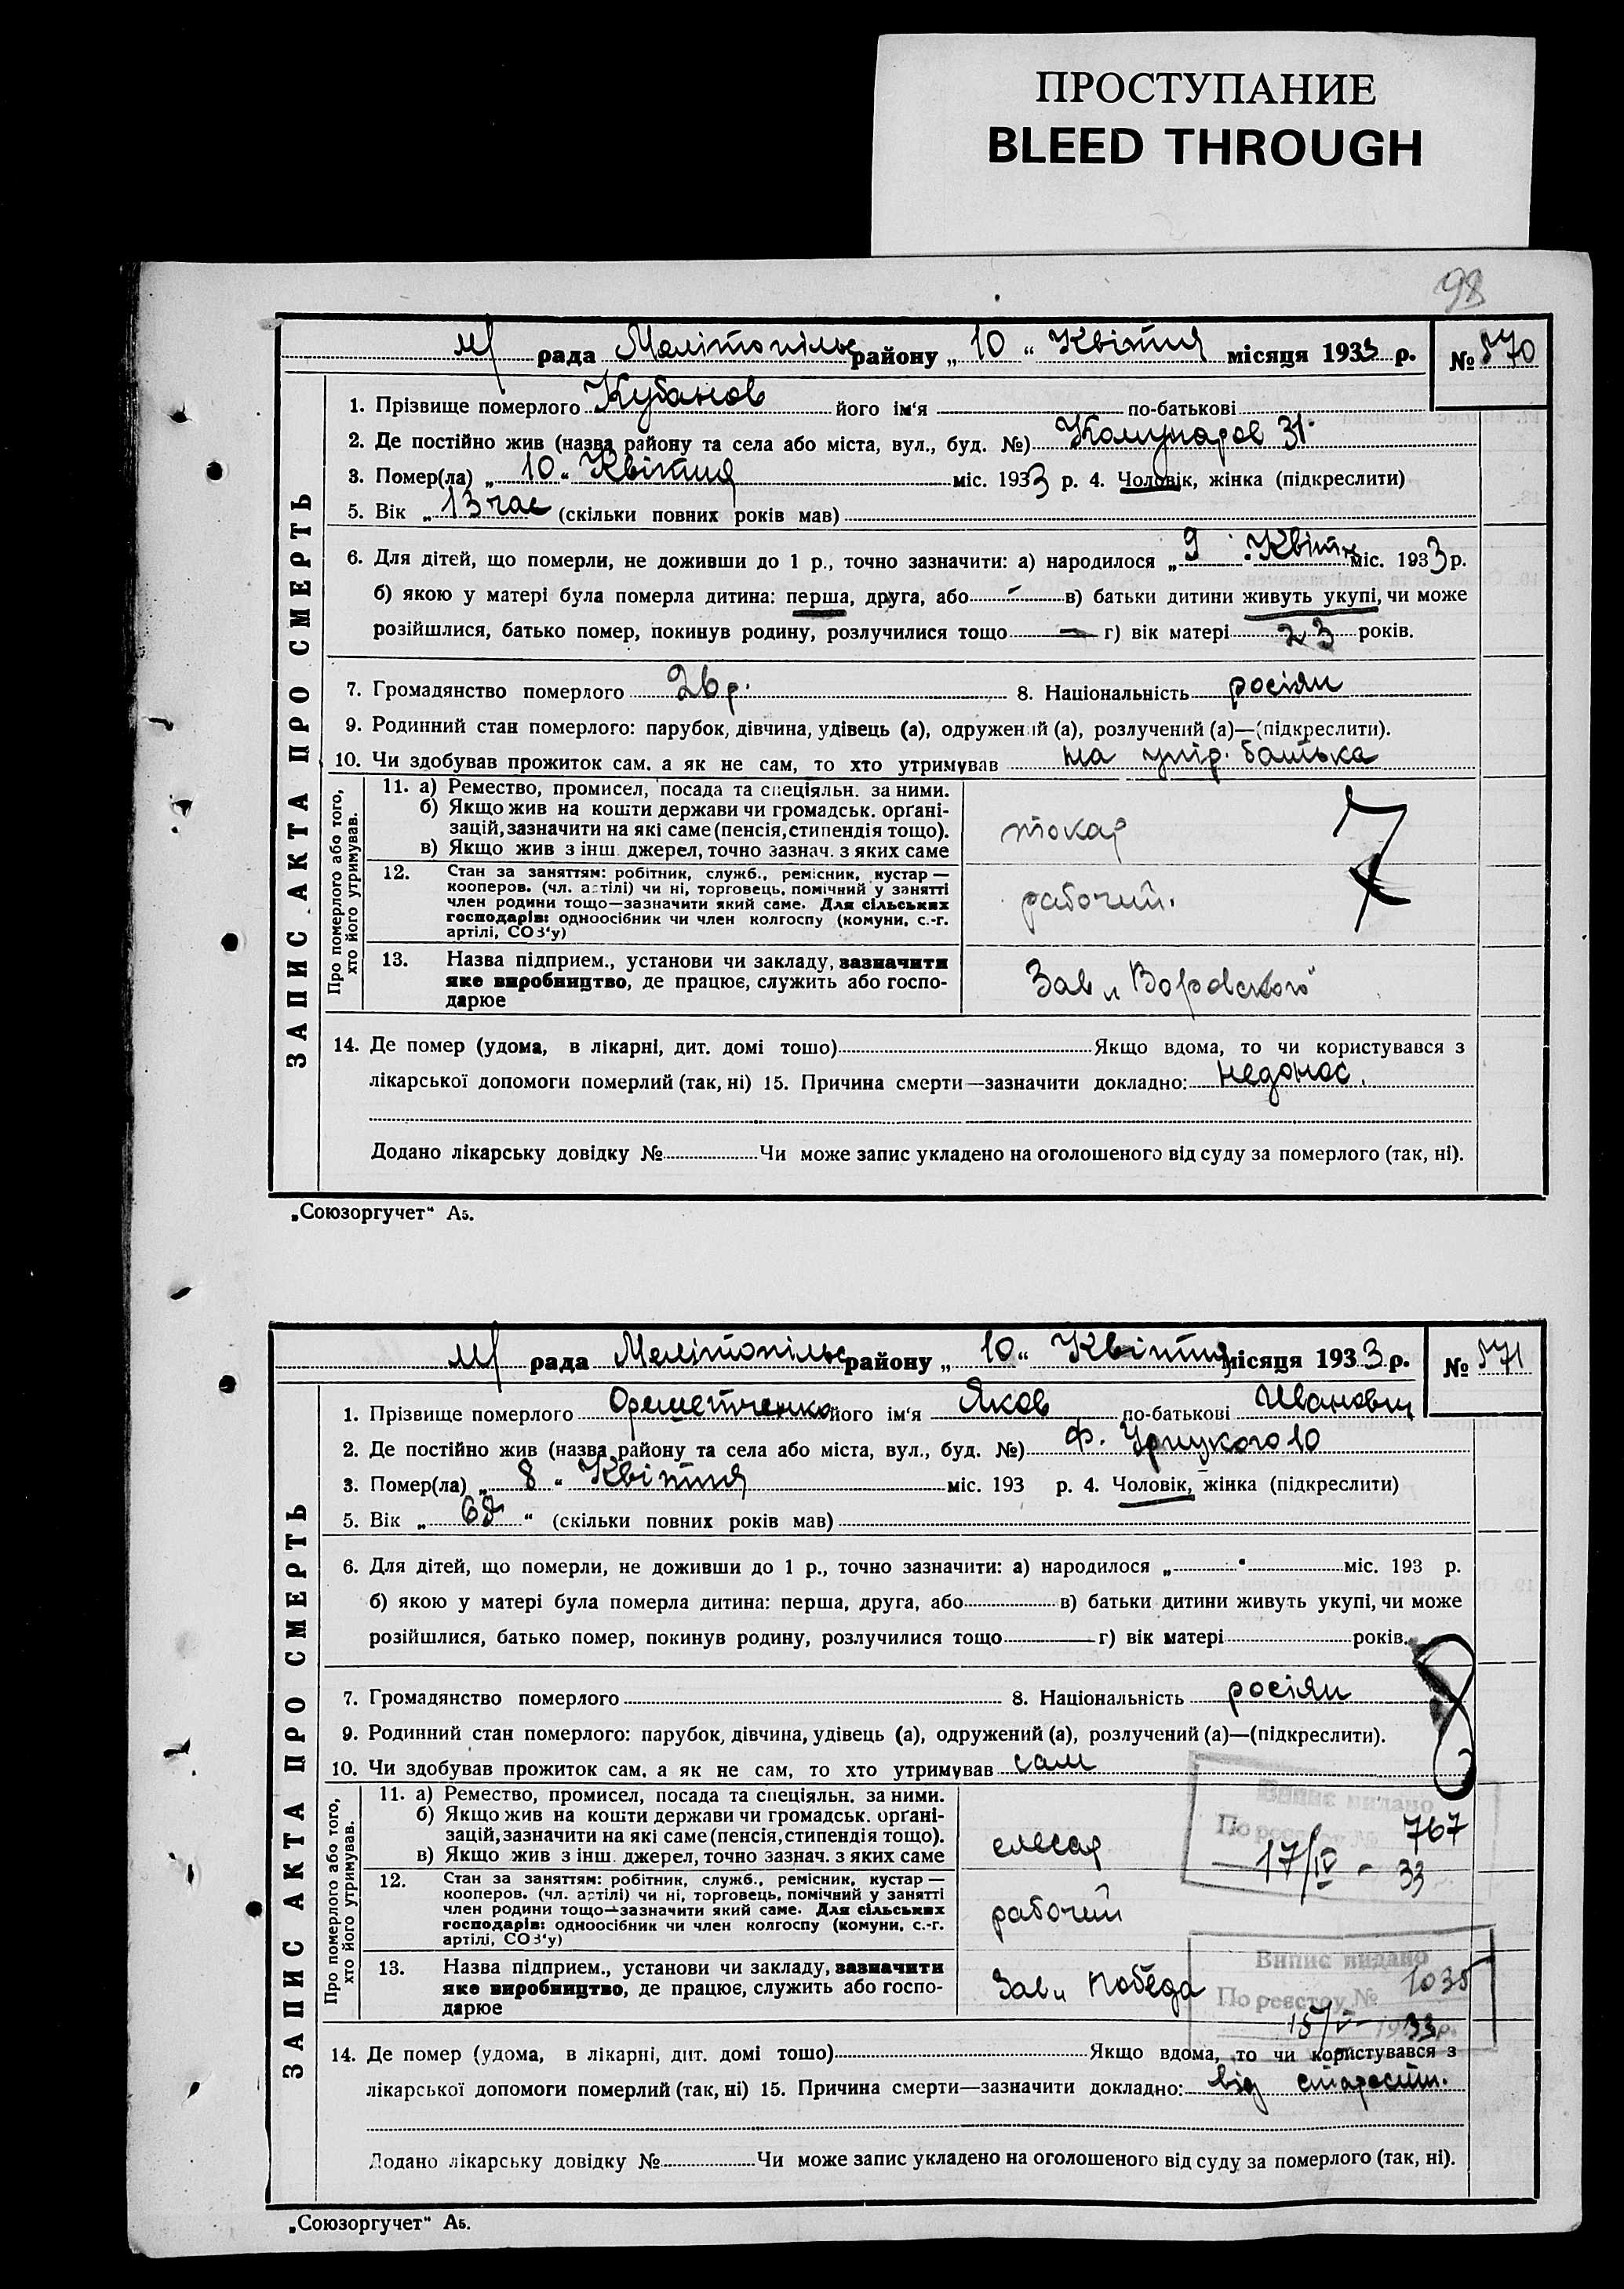 ПРОСТУПАНИЕ
BLEED THROUGH
98
м/ рада Мелітопільс району „ 10 “ Квітня місяця 1933 р. № 570
ЗАПИС АКТА ПРО СМЕРТЬ
1. Прізвище померлого Кубанов його ім'я по-батькові
2. Де постійно жив (назва району та села або міста, вул., буд. №) Комунаров 31
3. Помер(ла) „ 10 “ Квітня міс. 1933 р. 4. Чоловік, жінка (підкреслити)
5. Вік „ 13 час (скільки повних років мав)
6. Для дітей, що померли, не доживши до 1 р., точно зазначити: а) народилося „ 9 “ Квітн міс. 1933 р.
б) якою у матері була померла дитина: перша, друга, або — в) батьки дитини живуть укупі, чи може
розійшлися, батько помер, покинув родину, розлучилися тощо — г) вік матері 23 років.
7. Громадянство померлого 26 р. 8. Національність росіян
9. Родинний стан померлого: парубок, дівчина, удівець (а), одружений (а), розлучений (а)—(підкреслити).
10. Чи здобував прожиток сам, а як не сам, то хто утримував на утр. батька
Про померлого або того, хто його утримував.
11. а) Ремество, промисел, посада та спеціяльн. за ними.
б) Якщо жив на кошти держави чи громадськ. орґані-
зацій, зазначити на які саме (пенсія, стипендія тощо).
в) Якщо жив з інш. джерел, точно зазнач. з яких саме
токар
7
12. Стан за заняттям: робітник, служб., ремісник, кустар —
кооперов. (чл. артілі) чи ні, торговець, помічний у занятті
член родини тощо—зазначити який саме. Для сільських
господарів: одноосібник чи член колгоспу (комуни, с.-г.
артілі, СОЗ'у)
рабочий.
13. Назва підприєм., установи чи закладу, зазначити
яке виробництво, де працює, служить або госпо-
дарює
Зав „Воровского"
14. Де помер (удома, в лікарні, дит. домі тощо) Якщо вдома, то чи користувався з
лікарської допомоги померлий (так, ні) 15. Причина смерти—зазначити докладно: недонос.
Додано лікарську довідку № Чи може запис укладено на оголошеного від суду за померлого (так, ні).
„Союзоргучет“ А5.
м/ рада Мелітопільс району „ 10 “ Квітня місяця 1933 р. № 571
ЗАПИС АКТА ПРО СМЕРТЬ
1. Прізвище померлого Орешетченко його ім'я Яков по-батькові Иванович
2. Де постійно жив (назва району та села або міста, вул., буд. №) Ф. Урицкого 10
3. Помер(ла) „ 8 “ Квітня міс. 193 р. 4. Чоловік, жінка (підкреслити)
5. Вік „ “ (скільки повних років мав)
6. Для дітей, що померли, не доживши до 1 р., точно зазначити: а) народилося „ “ міс. 193 р.
б) якою у матері була померла дитина: перша, друга, або в) батьки дитини живуть укупі, чи може
розійшлися, батько помер, покинув родину, розлучилися тощо г) вік матері років.
7. Громадянство померлого 8. Національність росіян
9. Родинний стан померлого: парубок, дівчина, удівець (а), одружений (а), розлучений (а)—(підкреслити).
10. Чи здобував прожиток сам, а як не сам, то хто утримував сам
8
Про померлого або того, хто його утримував.
11. а) Ремество, промисел, посада та спеціяльн. за ними.
б) Якщо жив на кошти держави чи громадськ. орґані-
зацій, зазначити на які саме (пенсія, стипендія тощо).
в) Якщо жив з інш. джерел, точно зазнач. з яких саме
слесар
Випис видано
По реєстру № 767
17/IV - 33
12. Стан за заняттям: робітник, служб., ремісник, кустар —
кооперов. (чл. артілі) чи ні, торговець, помічний у занятті
член родини тощо—зазначити який саме. Для сільських
господарів: одноосібник чи член колгоспу (комуни, с.-г.
артілі, СОЗ'у)
рабочий
13. Назва підприєм., установи чи закладу, зазначити
яке виробництво, де працює, служить або госпо-
дарює
Зав „ Победа
Випис видано
По реєстру № 1035
15/V - 1933 р.
14. Де помер (удома, в лікарні, дит. домі тощо) Якщо вдома, то чи користувався з
лікарської допомоги померлий (так, ні) 15. Причина смерти—зазначити докладно: від старости.
Додано лікарську довідку № Чи може запис укладено на оголошеного від суду за померлого (так, ні).
„Союзоргучет“ А5.